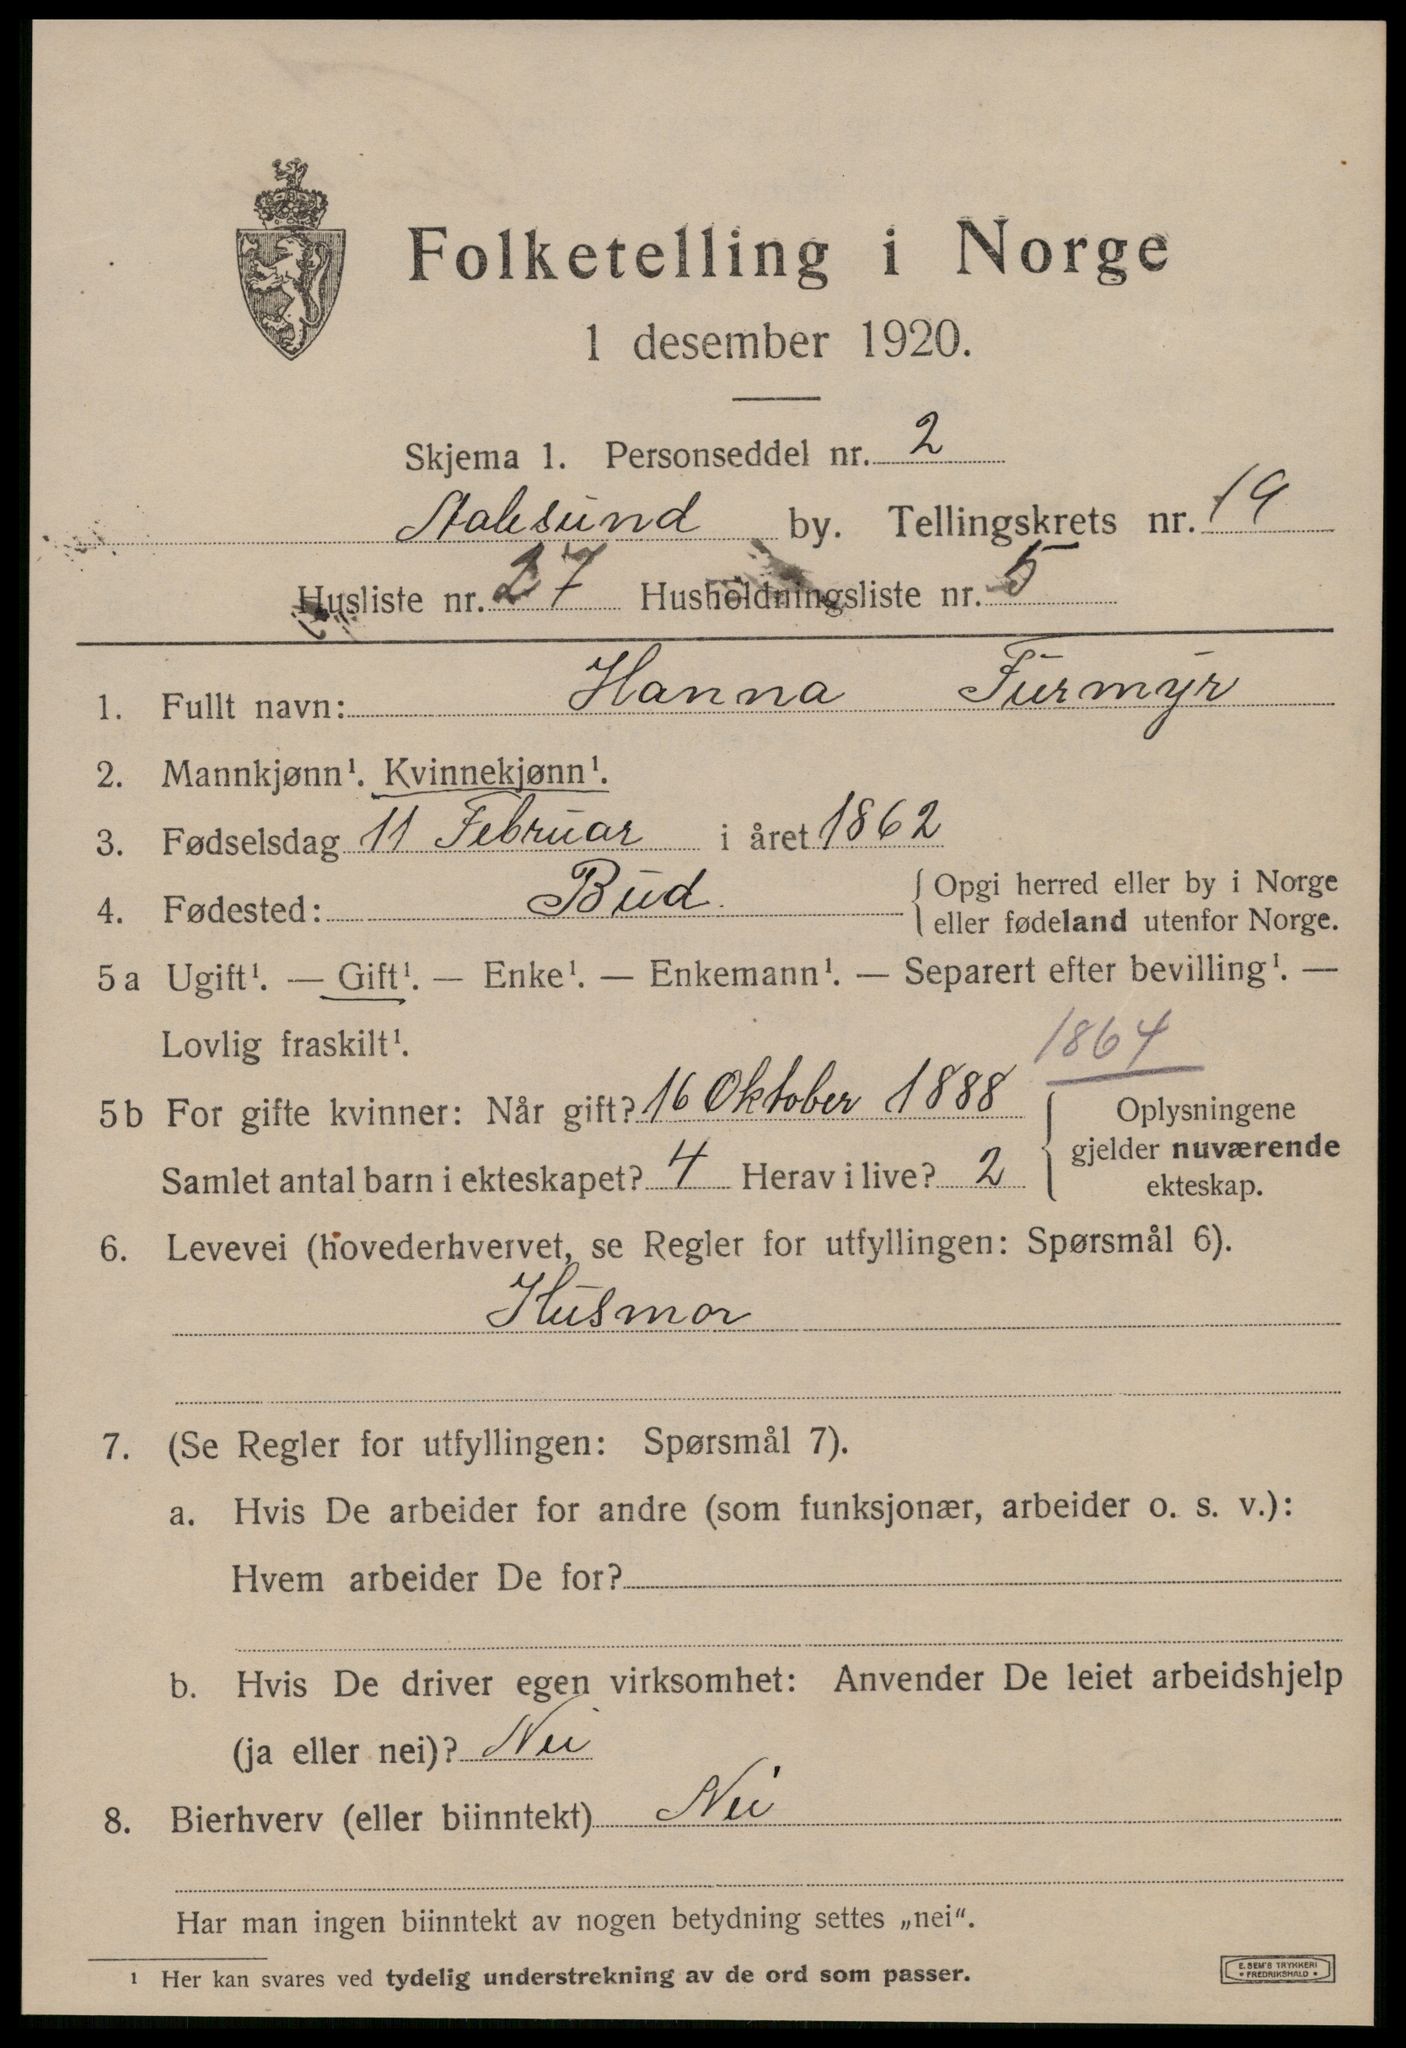 Folketelling i Norge
1 desember 1920.
Skjema 1. Personseddel nr. 2
Aalesund by. Tellingskrets nr. 19
Husliste nr. 27 Husholdningsliste nr. 5
1. Fullt navn: Hanna Furmyr
2. Mannkjønn¹. Kvinnekjønn¹.
3. Fødselsdag 11 Februar i året 1862
4. Fødested: Bud. { Opgi herred eller by i Norge
eller fødeland utenfor Norge.
5 a Ugift¹. — Gift¹. — Enke¹. — Enkemann¹. — Separert efter bevilling¹. —
Lovlig fraskilt¹.
1864
5 b For gifte kvinner: Når gift? 16 Oktober 1888 { Oplysningene
gjelder nuværende
Samlet antal barn i ekteskapet? 4 Herav i live? 2
ekteskap.
6. Levevei (hovederhvervet, se Regler for utfyllingen: Spørsmål 6).
Husmor
7. (Se Regler for utfyllingen: Spørsmål 7).
a. Hvis De arbeider for andre (som funksjonær, arbeider o. s. v.):
Hvem arbeider De for?
b. Hvis De driver egen virksomhet: Anvender De leiet arbeidshjelp
(ja eller nei)? Nei
8. Bierhverv (eller biinntekt) Nei
Har man ingen biinntekt av nogen betydning settes „nei“.
¹ Her kan svares ved tydelig understrekning av de ord som passer.
E. SEM'S TRYKKERI
* FREDRIKSHALD *